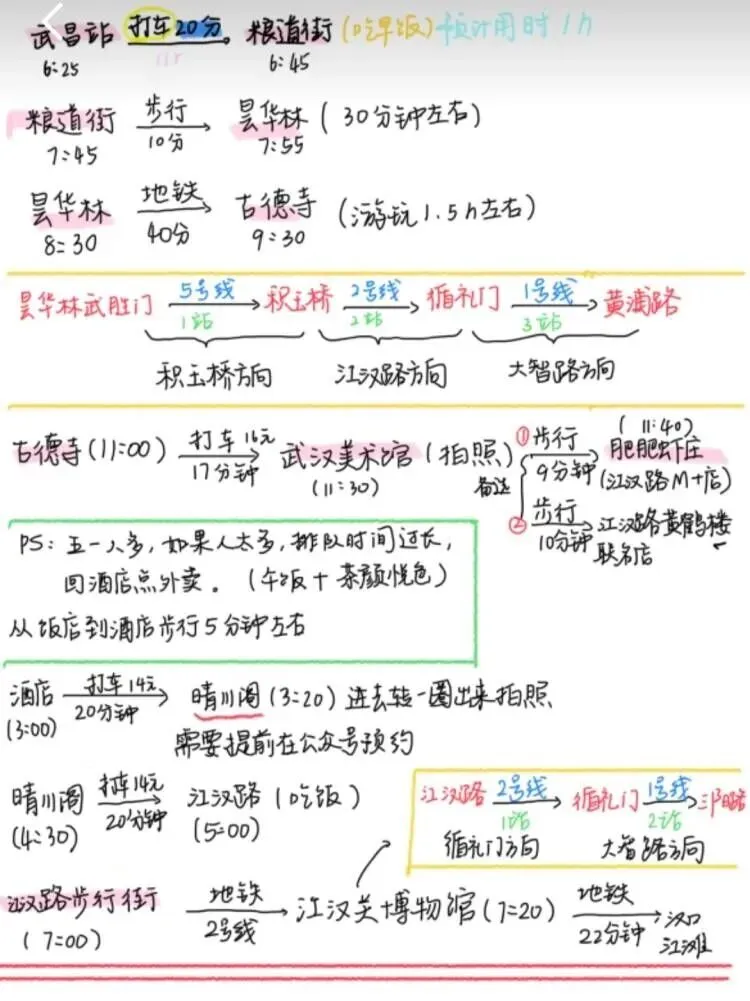 武昌站 打车20分 粮道街 (吃早饭) 预计用时 1h
6:25 6:45
粮道街 步行 昙华林 (30分钟左右)
7:45 10分 7:55
昙华林 地铁 古德寺 (游玩1.5h左右)
8:30 40分 9:30
昙华林武胜门 5号线 积玉桥 2号线 循礼门 1号线 黄浦路
1站 2站 3站
积玉桥方向 江汉路方向 大智路方向
古德寺(11:00) 打车16元 武汉美术馆 (拍照)
17分钟 (11:30) 备选
① 步行 肥肥虾庄 (11:40)
9分钟 (江汉路M+店)
② 步行 江汉路黄鹤楼
10分钟 联名店
PS: 五一人多,如果人太多,排队时间过长,
回酒店点外卖。 (午饭+茶颜悦色)
从饭店到酒店步行5分钟左右
酒店 打车14元 晴川阁 (3:20) 进去转一圈出来拍照
(3:00) 20分钟 需要提前在公众号预约
晴川阁 打车14元 江汉路 (吃饭)
(4:30) 20分钟 (5:00)
江汉路 2号线 循礼门 1号线
1站 2站
循礼门方向 大智路方向
江汉路步行街 地铁 江汉关博物馆(7:20) 地铁 汉口
(7:00) 2号线 22分钟 江滩